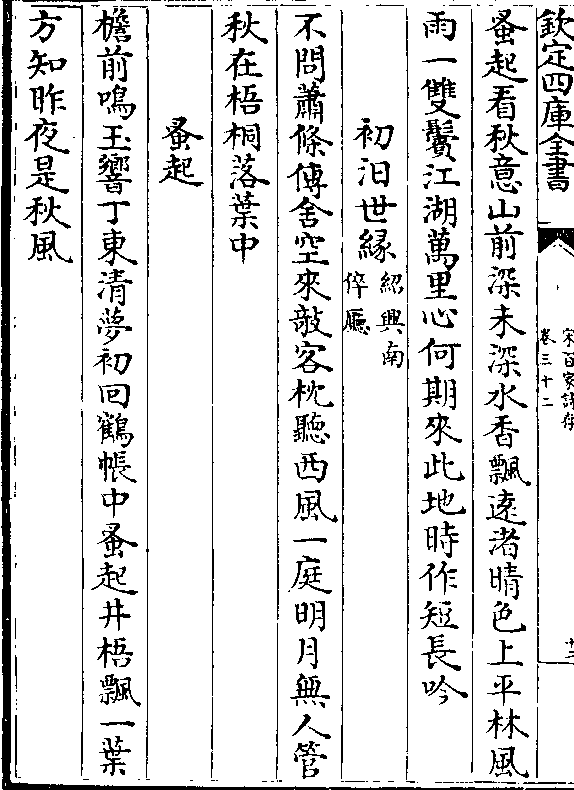 欽定四庫全書
宋百家詩存
卷三十二
十三
蚤起看秋意山前深未深水香飄遠渚晴色上平林風
雨一雙鬢江湖萬里心何期來此地時作短長吟
初汨世緣紹興南倅廳
不問蕭條傳舍空來敲客枕聽西風一庭明月無人管
秋在梧桐落葉中
蚤起
檐前鳴玉響丁東清夢初回鶴帳中蚤起井梧飄一葉
方知昨夜是秋風